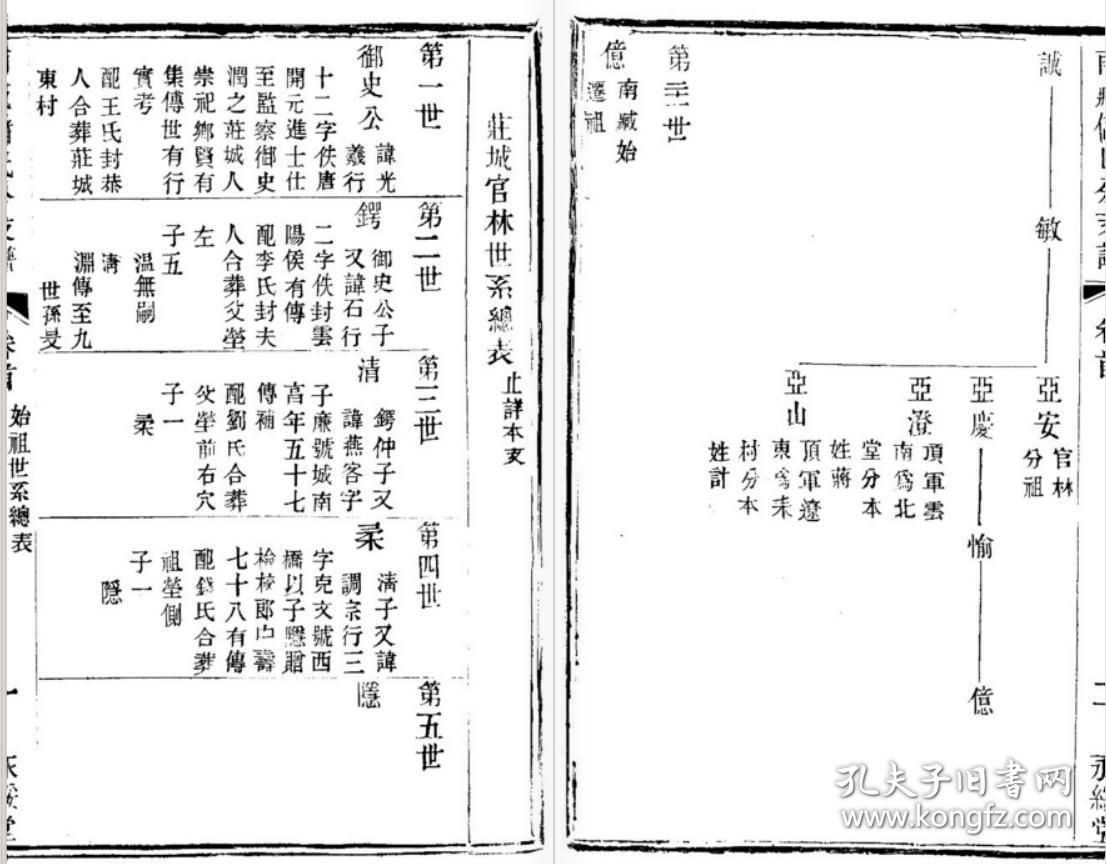 誠
敏
亞安
官林
分祖
亞慶
愉
億
亞澄
頂軍雲
南爲北
堂分本
姓蔣
亞山
頂軍遼
東爲耒
村分本
姓計
億
南臧始
遷祖
卷首
二
莊城官林世系總表
止詳本支
第一世
御史公
諱光
羲行
十二字佚唐
開元進士仕
至監察御史
潤之莊城人
崇祀鄉賢有
集傳世有行
實考
配王氏封恭
人合葬莊城
東村
第二世
鍔
御史公子
又諱石行
二字佚封雲
陽侯有傳
配李氏封夫
人合葬父塋
左
子五
溫無嗣
淵傳至九
第三世
清
鍔仲子又
諱燕客字
子廉號城南
享年五十七
傳補
配劉氏合葬
父塋前右穴
子一
柔
第四世
柔
清子又諱
調宗行三
字克文號西
橋以子隱贈
檢校郎中壽
七十八有傳
配錢氏合葬
祖塋側
子一
隱
第五世
隱
卷首
始祖世系總表
一
孔夫子旧书网
www.kongfz.com